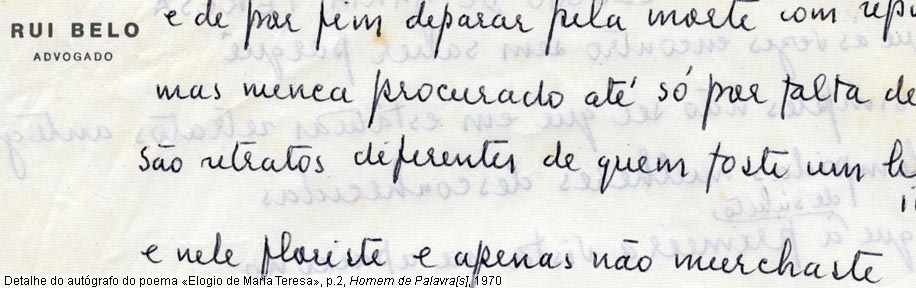 RUI BELO
ADVOGADO
e de por fim deparar pela morte com
mas nunca procurado até só por falta de
são retratos diferentes de quem foste um
e nele floriste e apenas não murchaste
Detalhe do autógrafo do poema «Elogio de Maria Teresa», p.2, Homem de Palavra[s], 1970